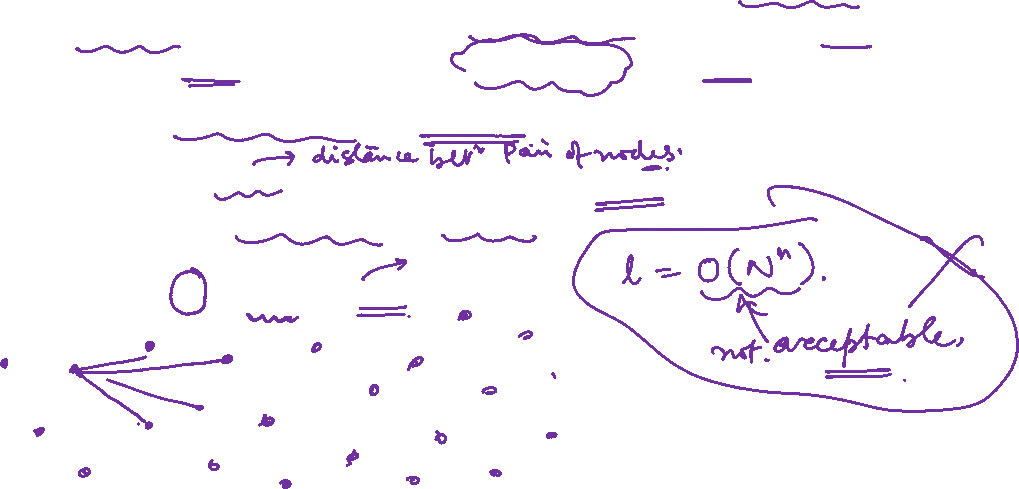 → distance betⁿ Pair of nodes.
l = O(Nⁿ).
not acceptable,